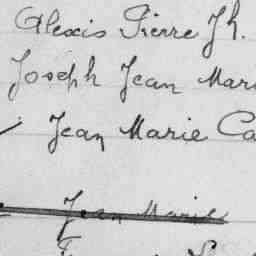 Alexis Pierre Jh.
Joseph Jean Mari
Jean Marie Ca
Jean Marie